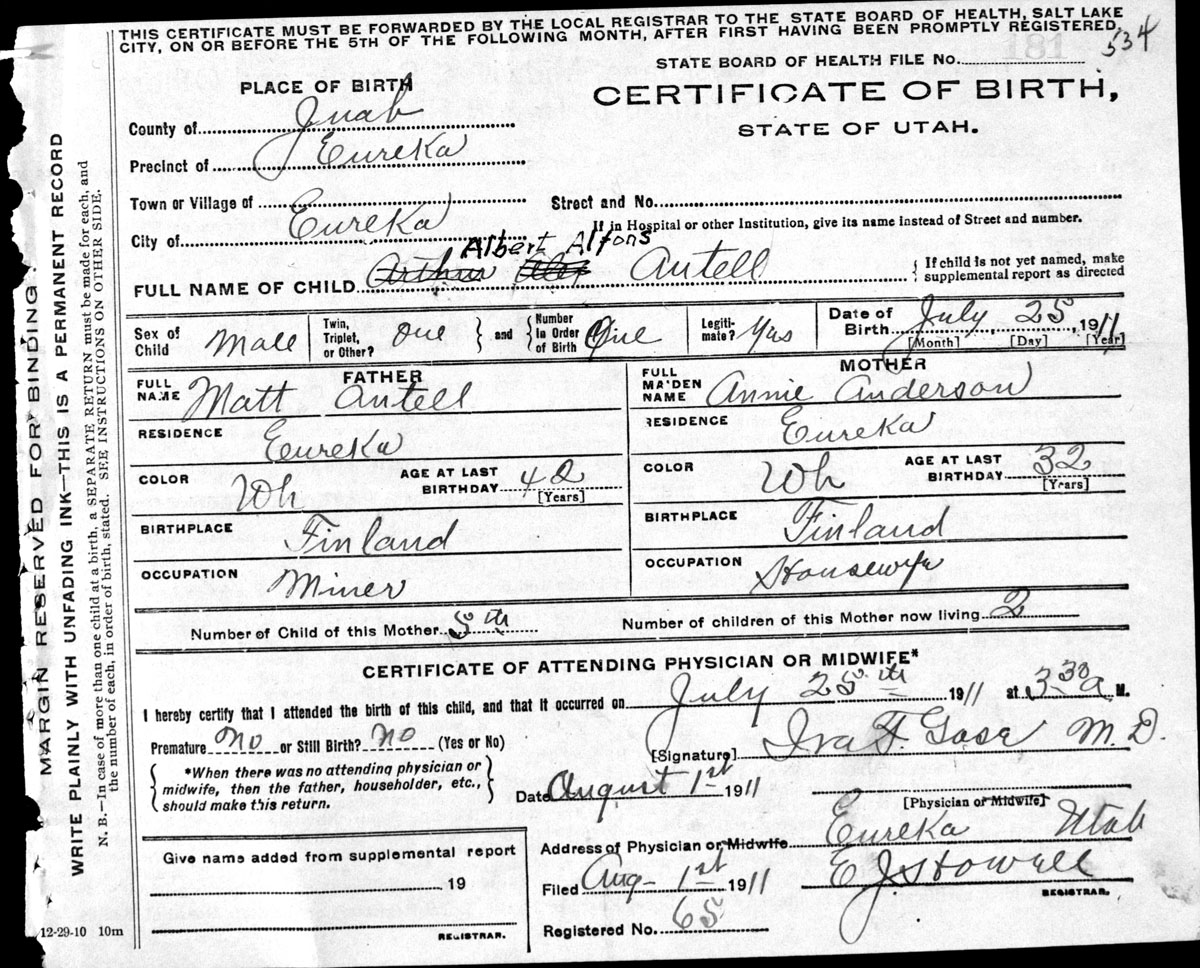 THIS CERTIFICATE MUST BE FORWARDED BY THE LOCAL REGISTRAR TO THE STATE BOARD OF HEALTH, SALT LAKE
CITY, ON OR BEFORE THE 5TH OF THE FOLLOWING MONTH, AFTER FIRST HAVING BEEN PROMPTLY REGISTERED
534
181
STATE BOARD OF HEALTH FILE No.
PLACE OF BIRTH
CERTIFICATE OF BIRTH,
STATE OF UTAH.
County of Juab
Precinct of Eureka
Town or Village of
Street and No.
If in Hospital or other Institution, give its name instead of Street and number.
City of Eureka
Albert Alfons
FULL NAME OF CHILD Arthur Alex Antell
{ If child is not yet named, make
supplemental report as directed
Sex of Child Male
Twin, Triplet, or Other? One } and { Number In Order of Birth One
Legiti-mate? Yas
Date of Birth July, 25, 1911
[Month] [Day] [Year]
FATHER
FULL NAME Matt Antell
RESIDENCE Eureka
COLOR Wh AGE AT LAST BIRTHDAY 42 [Years]
BIRTHPLACE Finland
OCCUPATION Miner
MOTHER
FULL MAIDEN NAME Annie Anderson
RESIDENCE Eureka
COLOR Wh AGE AT LAST BIRTHDAY 32 [Years]
BIRTHPLACE Finland
OCCUPATION Housewife
Number of Child of this Mother 5th
Number of children of this Mother now living 2
CERTIFICATE OF ATTENDING PHYSICIAN OR MIDWIFE*
I hereby certify that I attended the birth of this child, and that it occurred on July 25th 1911 at 3 30 a M.
Premature no or Still Birth? no (Yes or No)
[Signature] Ira F. M.D.
{ *When there was no attending physician or
midwife, then the father, householder, etc.,
should make this return. }
Date August 1st 1911
[Physician or Midwife]
Address of Physician or Midwife Eureka Utah
Give name added from supplemental report
19
REGISTRAR.
Filed Aug- 1st 1911 E J Howell
REGISTRAR.
Registered No. 65
12-29-10 10m
MARGIN RESERVED FOR BINDING.
WRITE PLAINLY WITH UNFADING INK—THIS IS A PERMANENT RECORD
N. B.—In case of more than one child at a birth, a SEPARATE RETURN must be made for each, and
the number of each, in order of birth, stated. SEE INSTRUCTIONS ON OTHER SIDE.